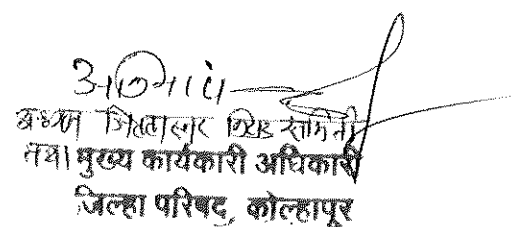 अध्यक्ष जिल्हास्तर निवड समिती
तथा मुख्य कार्यकारी अधिकारी
जिल्हा परिषद, कोल्हापूर